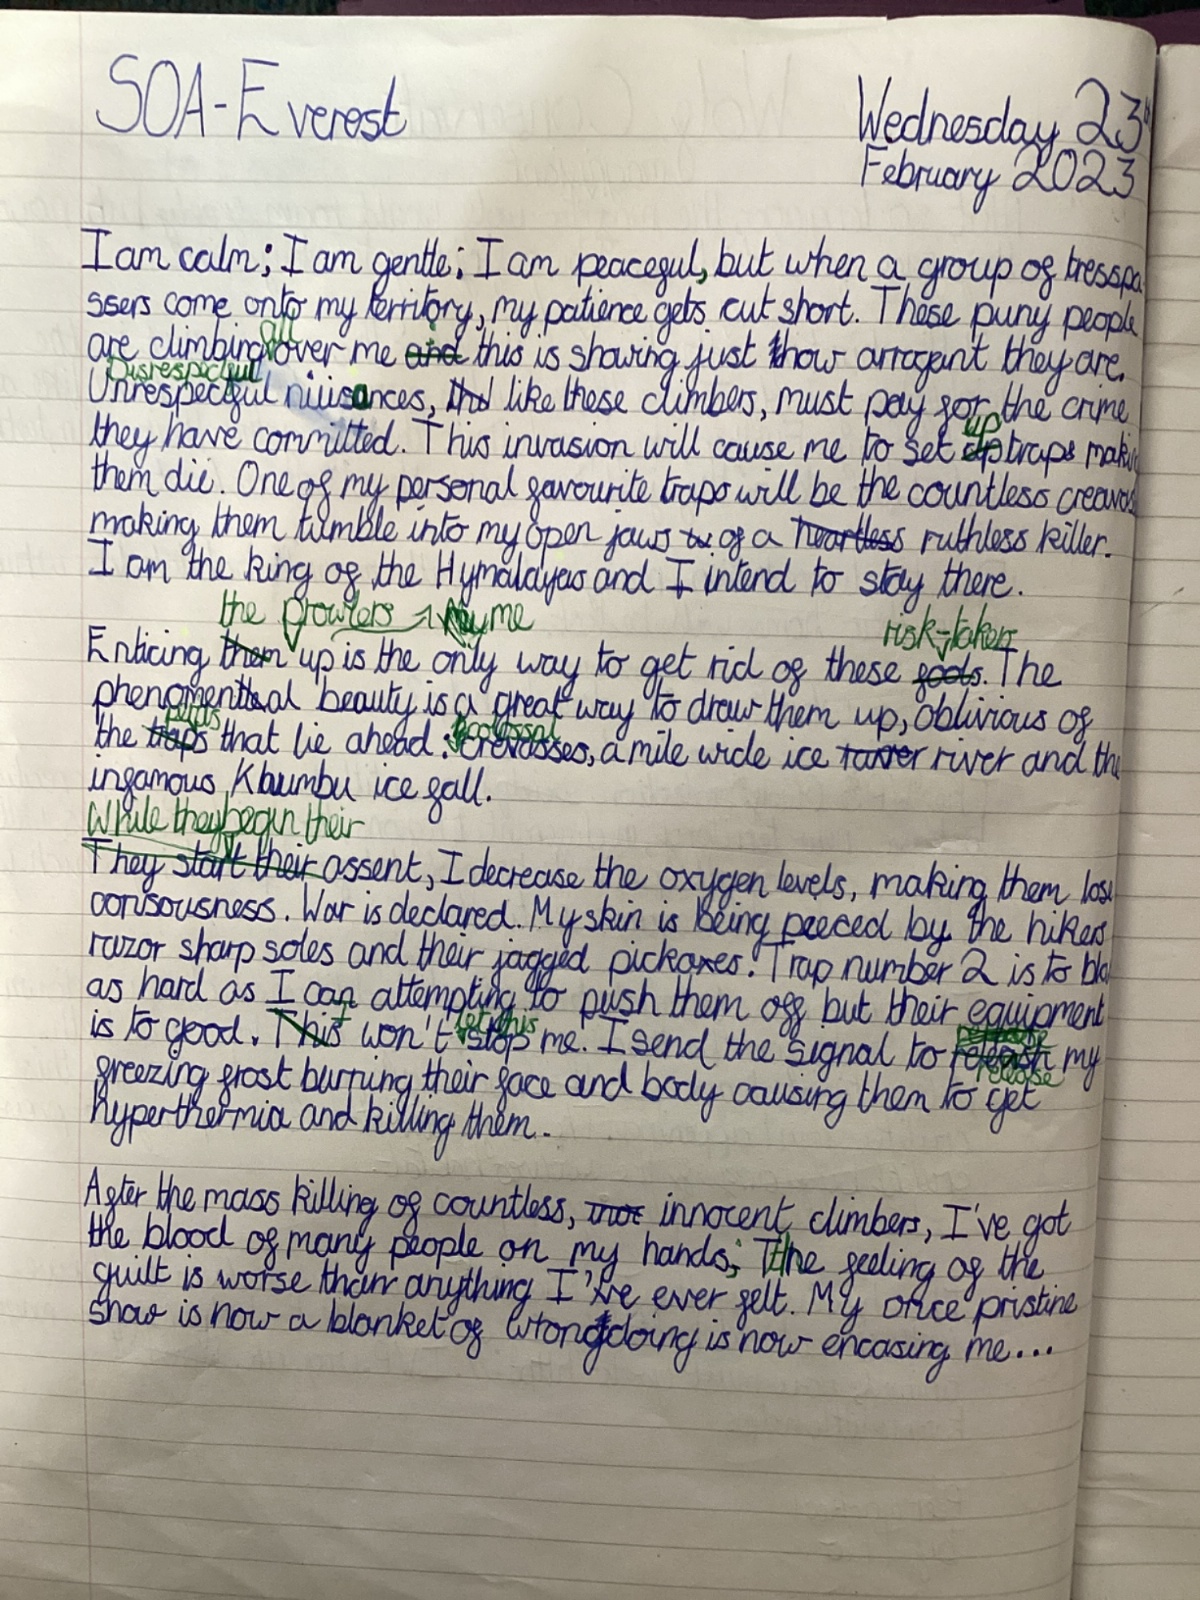 SOA-Everest
Wednesday 23th
February 2023
I am calm; I am gentle; I am peaceful, but when a group of tresspa
ssers come onto my territory, my patience gets cut short. These puny people
all
are climbing over me and this is showing just how arrogant they are.
Disrespectful
Unrespectful nuisances, like these climbers, must pay for the crime
up
they have committed. This invasion will cause me to set up traps makin
them die. One of my personal favourite traps will be the countless creavas
making them tumble into my open jaws of a heartless ruthless killer.
I am the king of the Hymalayas and I intend to stay there.
the prowlers me
risk-takers
Enticing them up is the only way to get rid of these fools. The
phenomenal beauty is a great way to draw them up, oblivious of
perils
the traps that lie ahead: crevasses, a mile wide ice river and the
infamous Khumbu ice fall.
While they begin their
They start their assent, I decrease the oxygen levels, making them lose
consousness. War is declared. My skin is being peeced by the hikers
razor sharp soles and their jagged pickaxes. Trap number 2 is to blo
as hard as I can attempting to push them off but their equipment
let this
is to good. This won't stop me. I send the signal to release my
release
freezing frost burning their face and body causing them to get
hyperthermia and killing them.
After the mass killing of countless, innocent climbers, I've got
the blood of many people on my hands; The feeling of the
guilt is worse than anything I've ever felt. My once pristine
snow is now a blanket of wrongdoing is now encasing me...